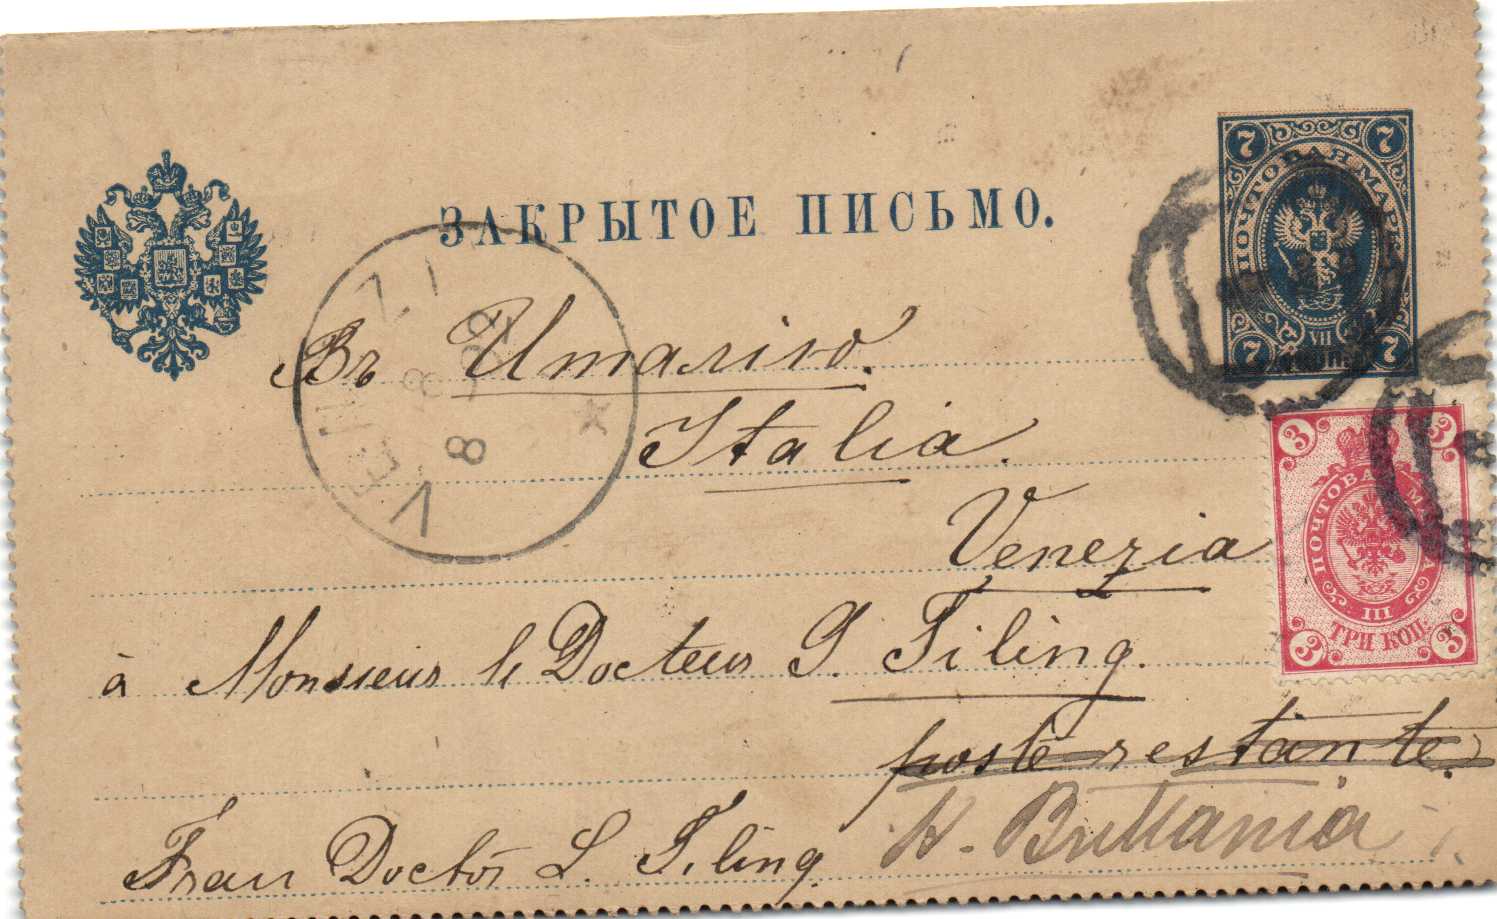 ЗАКРЫТОЕ ПИСЬМО.
7 7
ПОЧТОВАЯ МАРКА
VII
7 КОП. 7
VENEZIA
8 8 89
Въ Италію.
Italia.
Venezia
3 3
ПОЧТОВАЯ МАРКА
III
ТРИ КОП.
3 3
à Monsieur le Docteur I. Tiling.
poste restante.
Frau Doctor L. Tiling.
H. Brittania